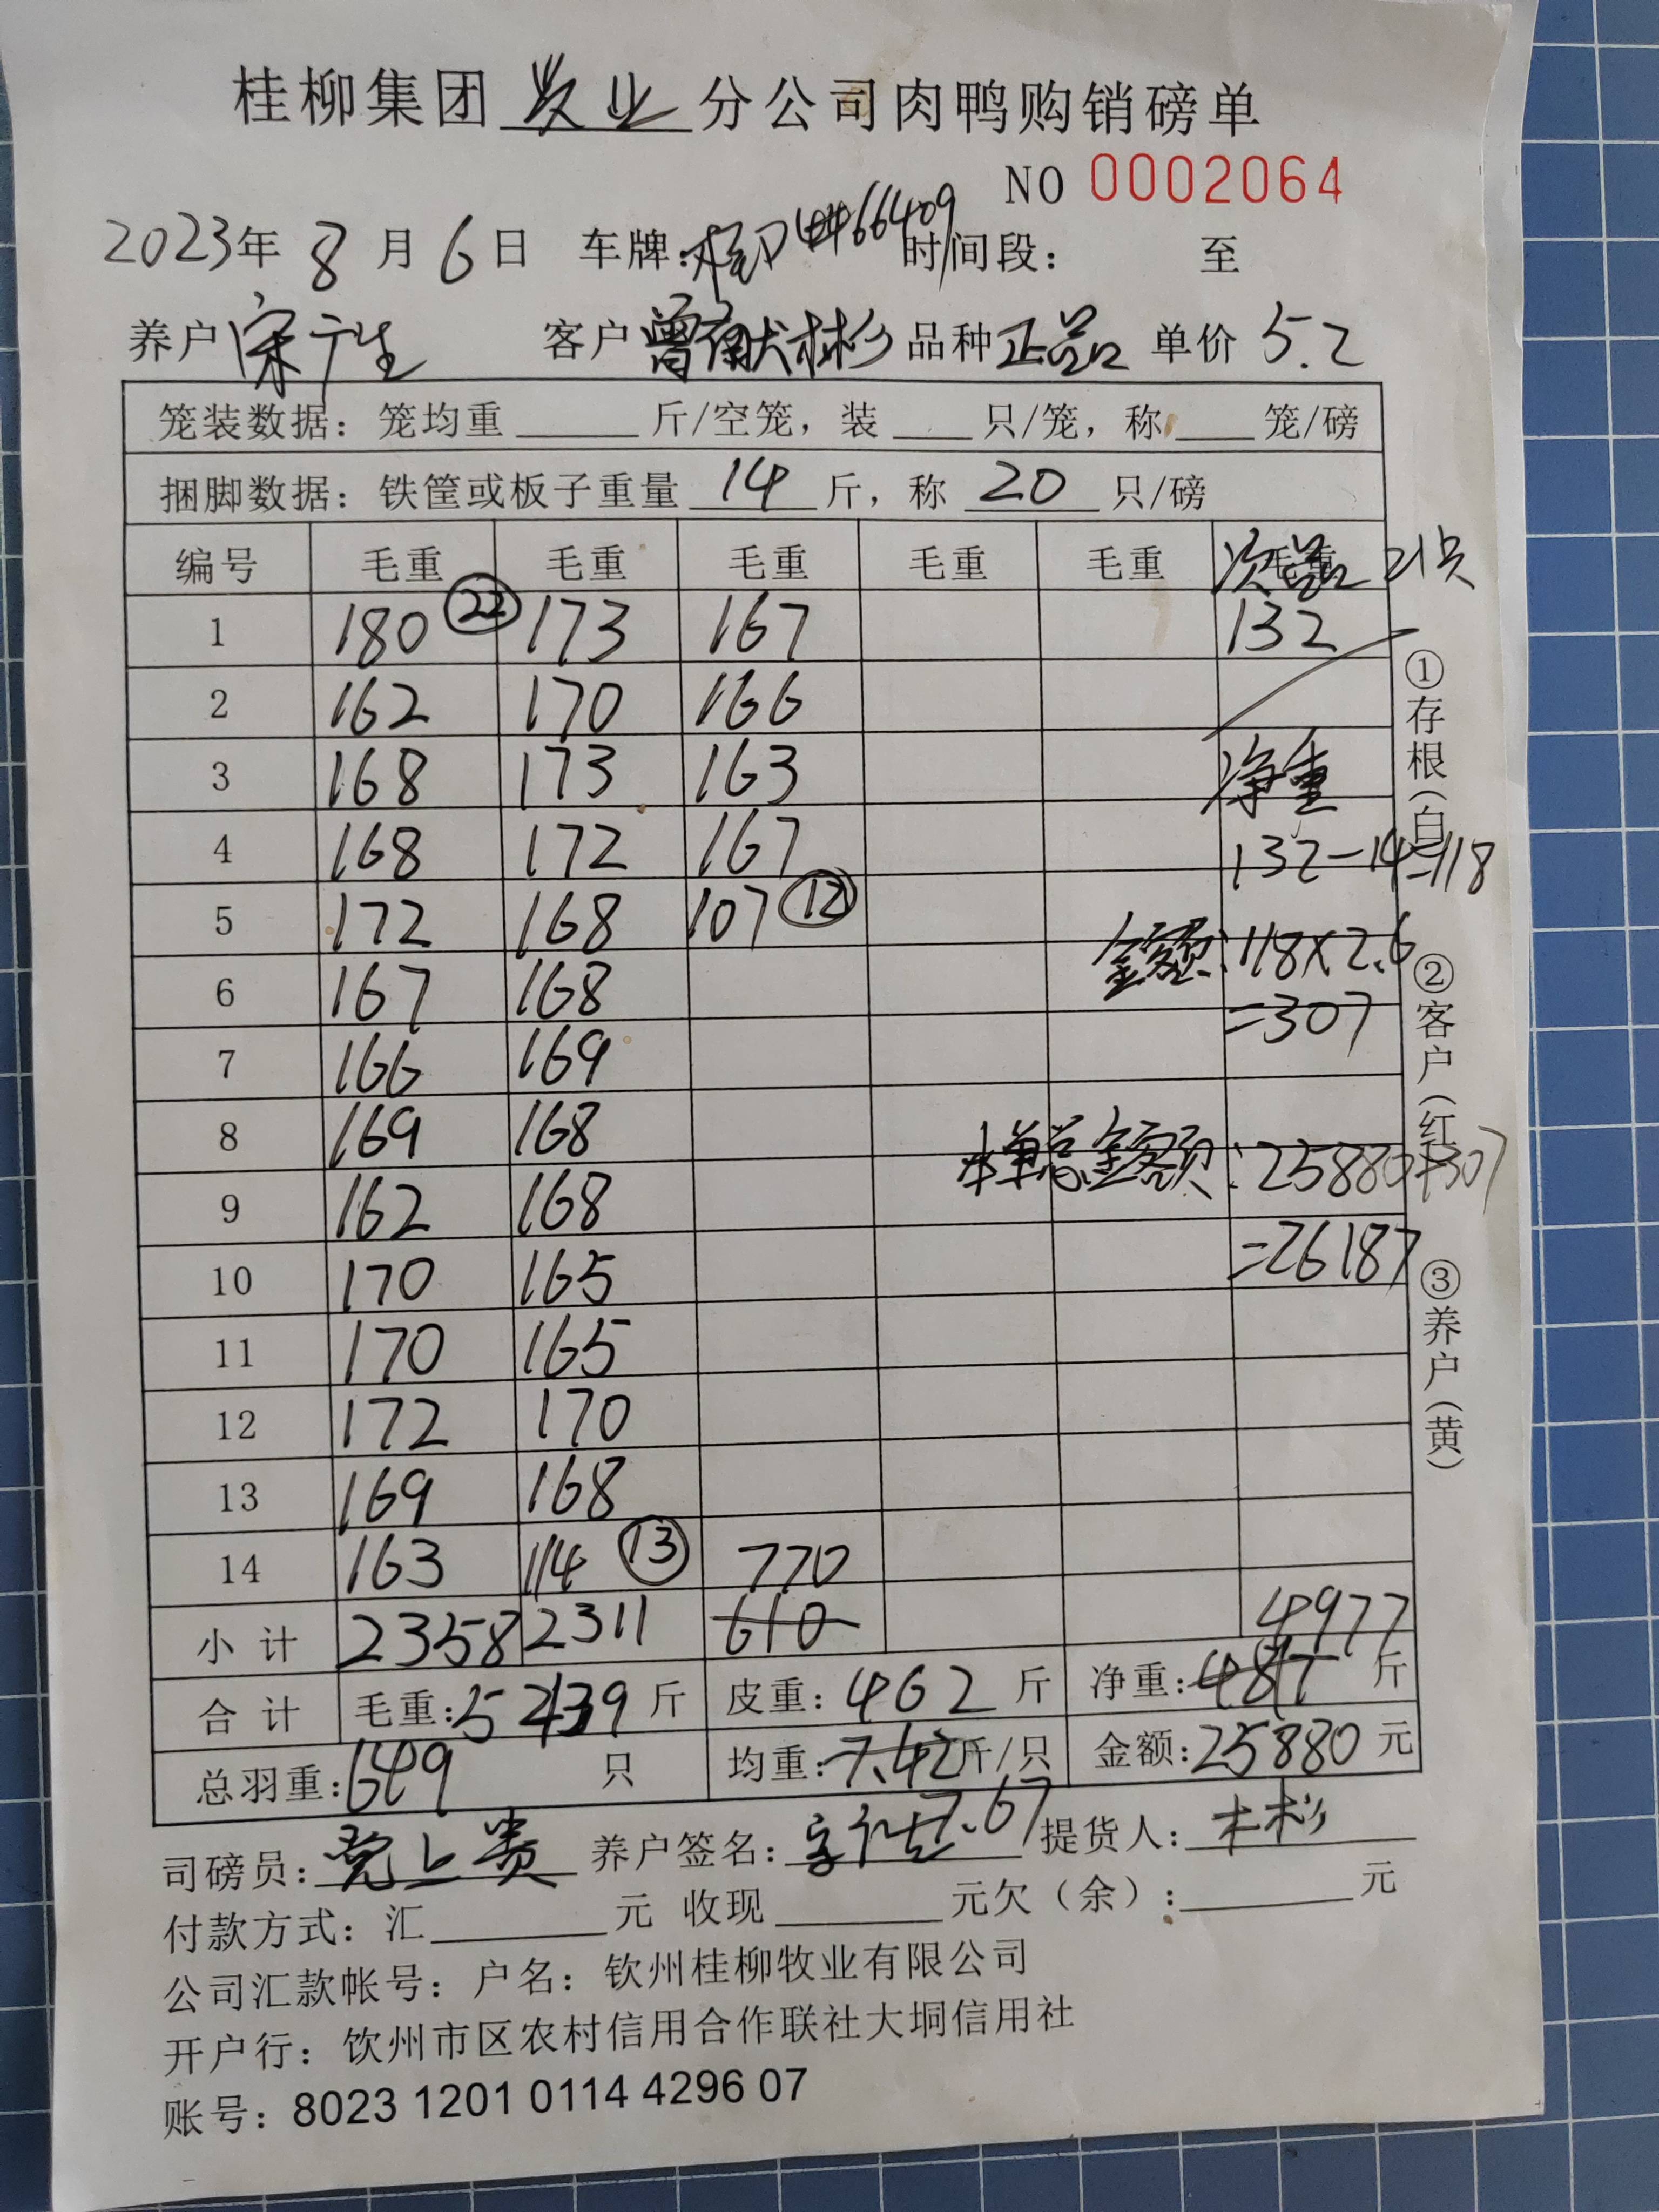 桂柳集团 农业 分公司肉鸭购销磅单
NO 0002064
2023年 8 月 6 日 车牌: 66409 时间段: 至
养户 宋广生 客户 曾献彬 品种 正品 单价 5.2
笼装数据: 笼均重 ____ 斤/空笼, 装 ____ 只/笼, 称 ____ 笼/磅
捆脚数据: 铁筐或板子重量 14 斤, 称 20 只/磅
编号 毛重 毛重 毛重 毛重 毛重 毛重 次品 21只
1 180 ㉒ 173 167 132
2 162 170 166
3 168 173 163 净重
4 168 172 167 132-14=118
5 172 168 107 ⑫ 金额:118×2.6
6 167 168 =307
7 166 169
8 169 168 本单总金额:25880+307
9 162 168 =26187
10 170 165
11 170 165
12 172 170
13 169 168
14 163 114 ⑬ 770
小计 2358 2311 610 4977
合计 毛重:5439 斤 皮重:462 斤 净重:4817 斤
总羽重:649 只 均重:7.42斤/只 金额:25880 元
7.67
司磅员: 上贵 养户签名: 提货人: 木彬
付款方式: 汇____元 收现____元欠(余):____元
公司汇款帐号: 户名: 钦州桂柳牧业有限公司
开户行: 钦州市区农村信用合作联社大垌信用社
账号: 8023 1201 0114 4296 07
①存根(白) ②客户(红) ③养户(黄)